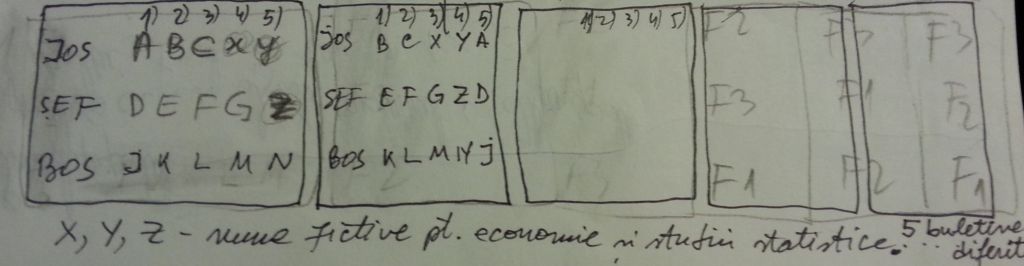 1) 2) 3) 4) 5)
JOS A B C X Y
SEF D E F G Z
BOS J K L M N
1) 2) 3) 4) 5)
JOS B C X Y A
SEF E F G Z D
BOS K L M N J
1) 2) 3) 4) 5)
F2
F3
F1
F3
F1
F2
F3
F2
F1
X, Y, Z - nume fictive pt. economie și studii statistice.
5 buletine
diferit